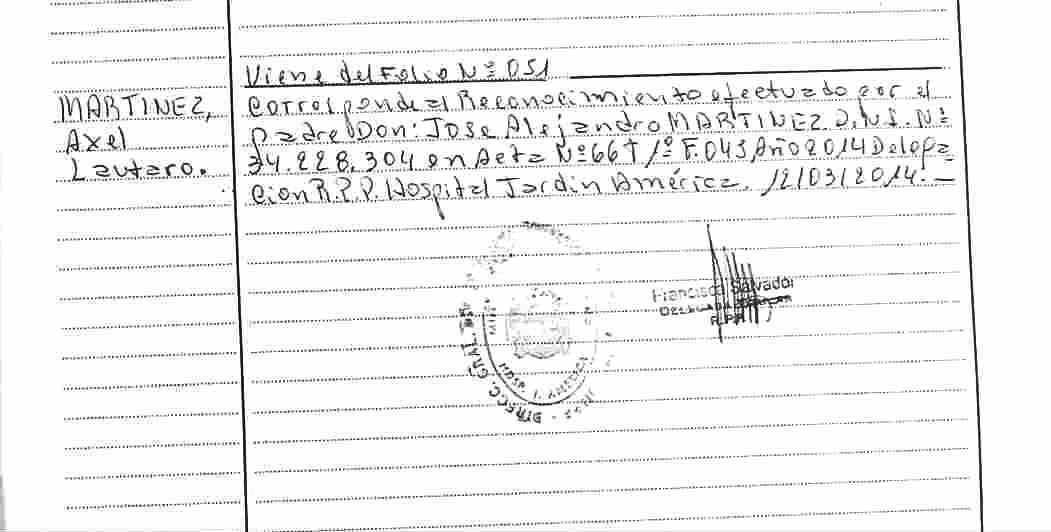 Viene del Folio Nº 051
MARTINEZ,
Axel
Lautaro.
Corresponde al Reconocimiento efectuado por el
padre Don: Jose Alejandro MARTINEZ D.N.I. Nº
34.228.304 en Acta Nº 667 1º F.043 Año 2014 Delega
cion R.P.P. Hospital Jardin América. 12/03/2014.—
Francisca Salvador
R.P.P.
DIRECC. GRAL.
HOSP. J. AMERICA